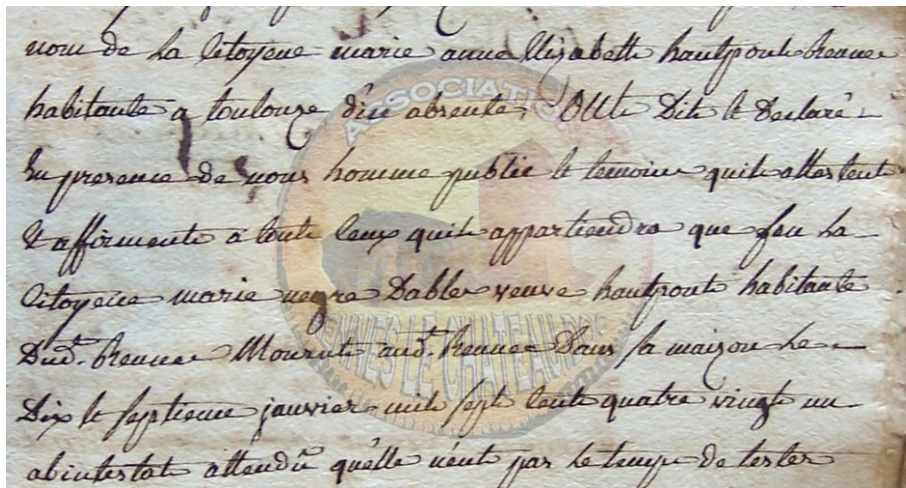 nom de la Citoyene marie anne Elisabeth hautpoul-Rennes
habitante a toulouze d'ici absente, Ont Dit et Declaré
En presence de nous homme public et temoins quils attestent
Et affirment a touts ceux quil appartiendra que feu la
Citoyene marie negre Dables veuve hautpoul habitante
Dud. Rennes Mourut aud. Rennes Dans sa maizon le
Dix et septieme janvier mil sept cents quatre vingt un
abintestat attendu quelle n'eut pas le temps de tester
ASSOCIATION
RENNES LE CHATEAU.DOC